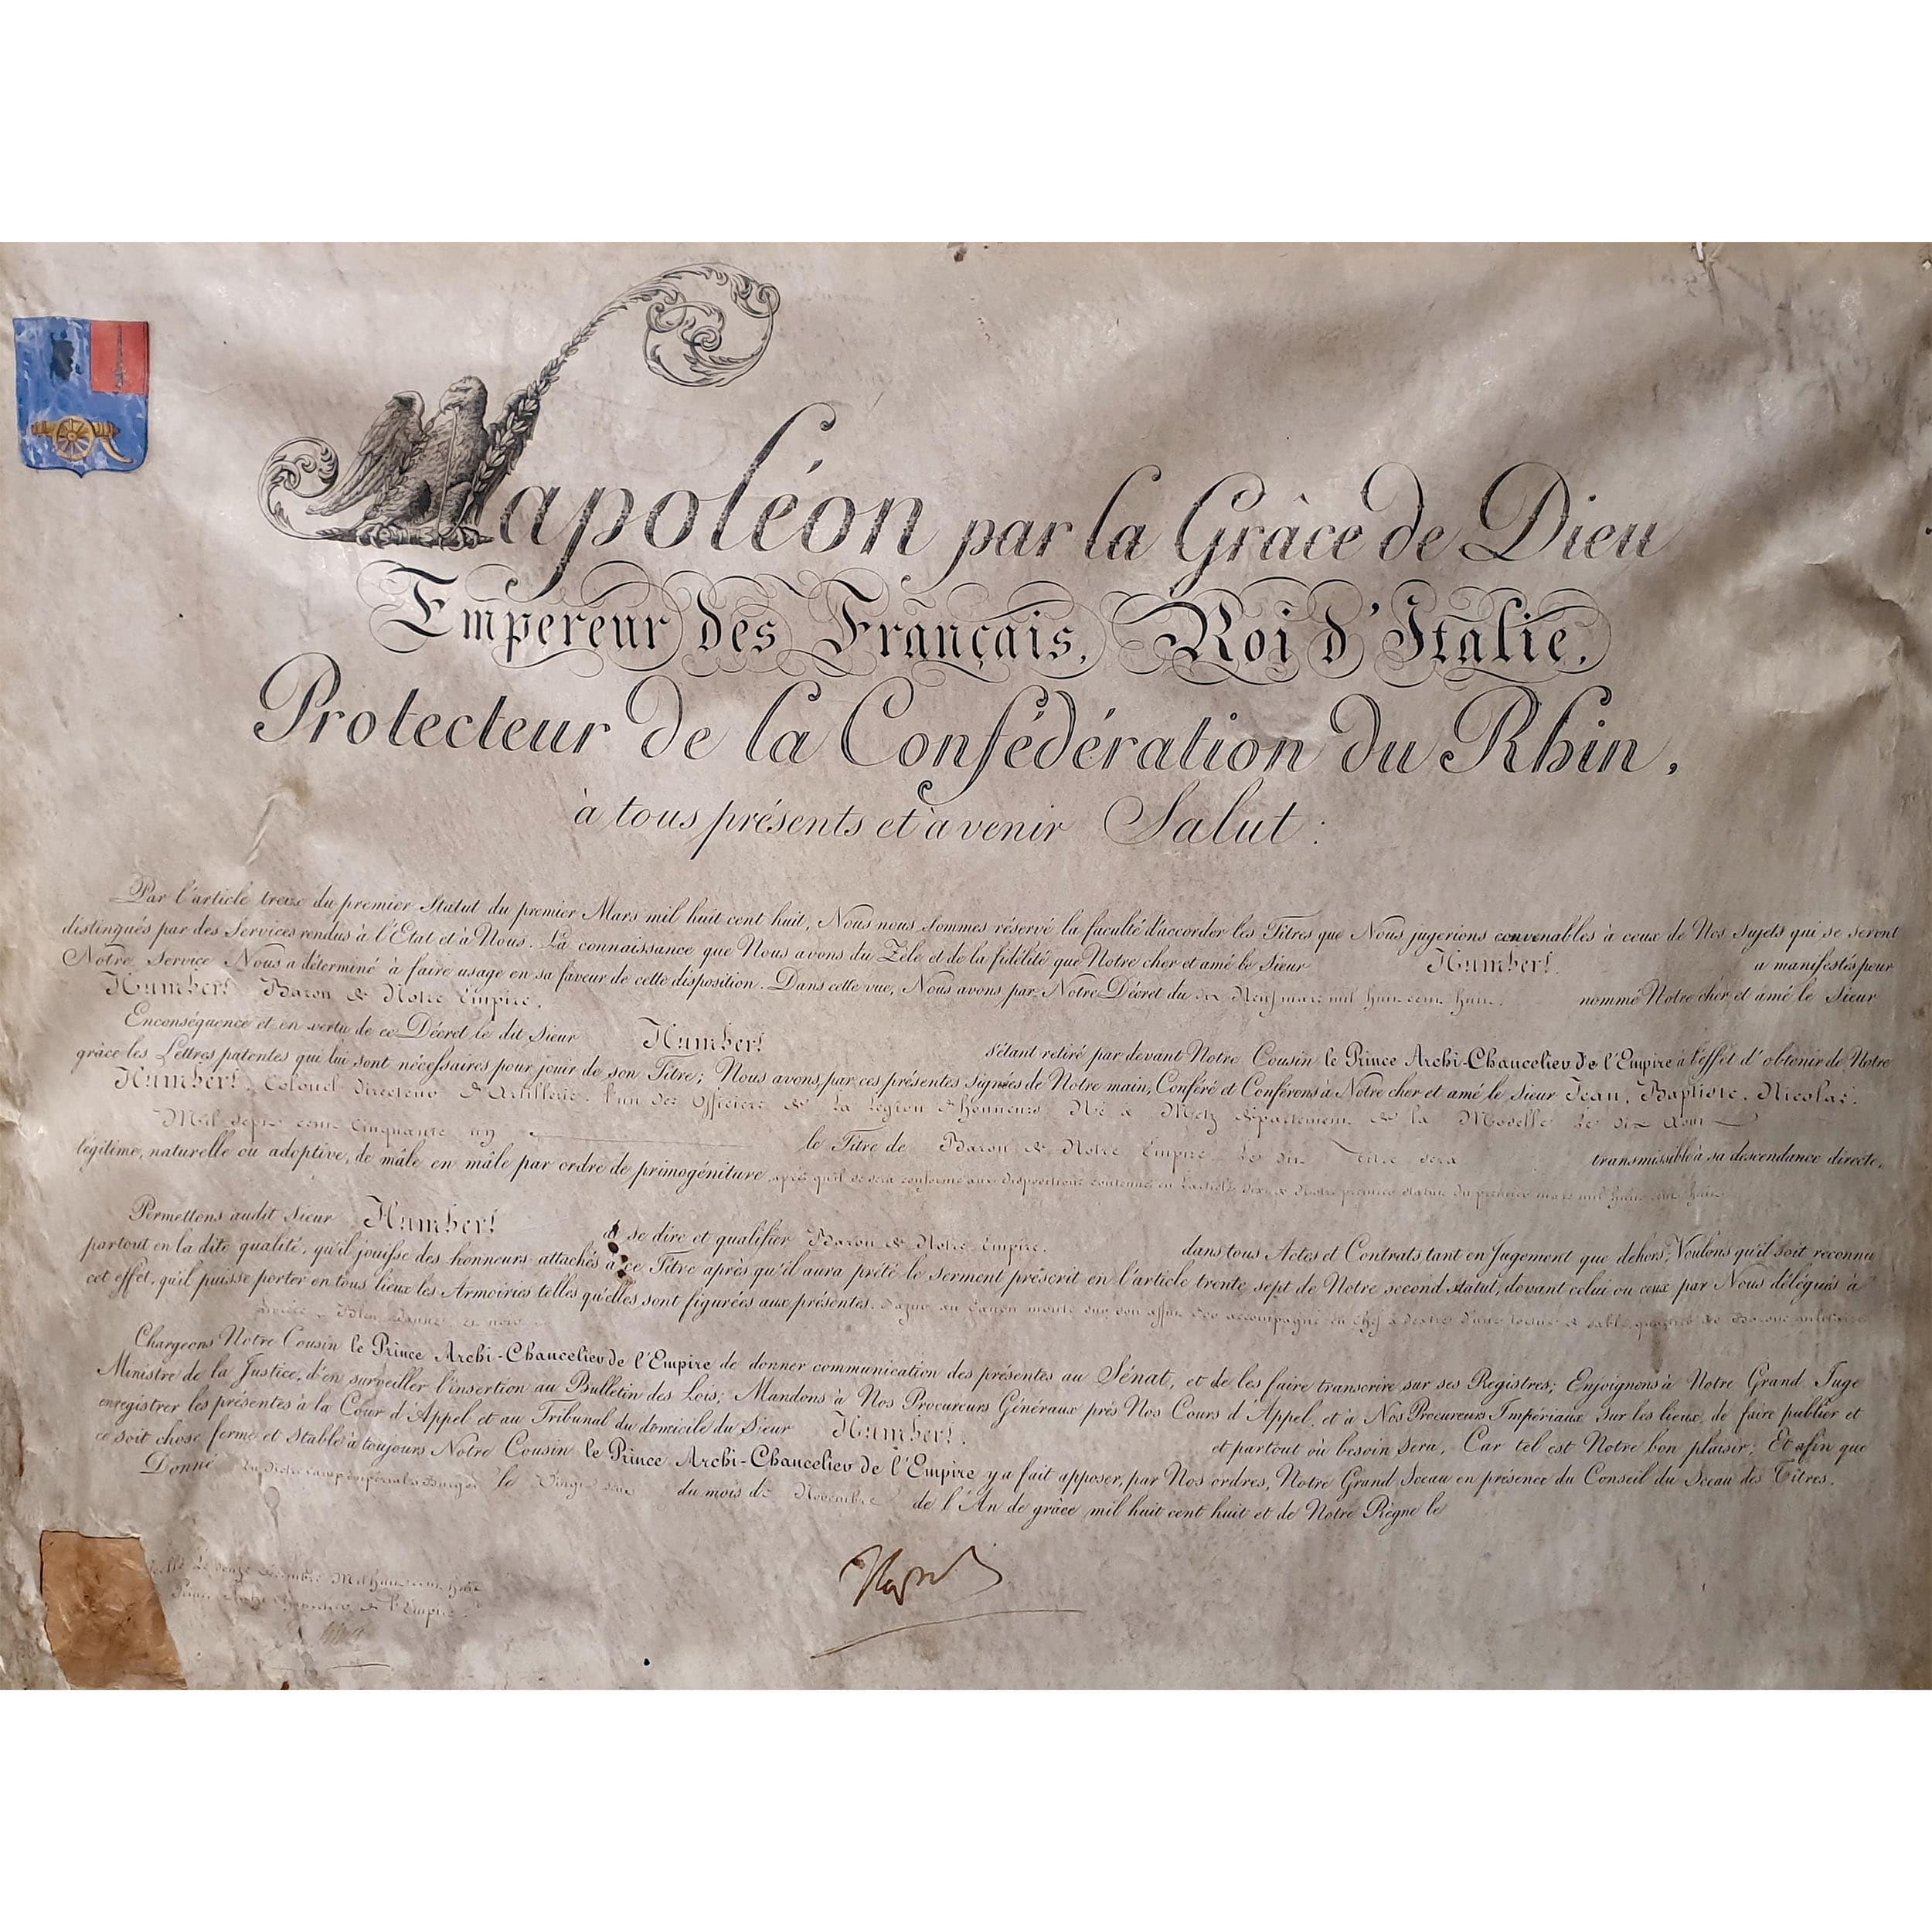 Napoléon par la Grâce de Dieu
Empereur des Français, Roi d'Italie,
Protecteur de la Confédération du Rhin,
à tous présents et à venir Salut :
Par l'article treize du premier Statut du premier Mars mil huit cent huit, Nous nous sommes réservé la faculté d'accorder les Titres que Nous jugerions convenables à ceux de Nos Sujets qui se seront
distingués par des Services rendus à l'Etat et à Nous. La connaissance que Nous avons du Zèle et de la fidélité que Notre cher et amé le Sieur Humbert a manifestés pour
Notre Service Nous a déterminé à faire usage en sa faveur de cette disposition. Dans cette vue, Nous avons par Notre Décret du dix Neuf mars mil huit cent huit. nommé Notre cher et amé le Sieur
Humbert Baron de Notre Empire.
Enconséquence et en vertu de ce Décret le dit Sieur Humbert s'étant retiré par devant Notre Cousin le Prince Archi-Chancelier de l'Empire à l'effet d'obtenir de Notre
grâce les Lettres patentes qui lui sont nécessaires pour jouir de son Titre; Nous avons, par ces présentes signées de Notre main, Conféré et Conférons à Notre cher et amé le Sieur Jean, Baptiste, Nicolas,
Humbert, Colonel directeur d'Artillerie, l'un des Officiers de La Légion d'honneur, Né à Metz département de la Moselle le dix Aout
Mil sept cent Cinquante un le Titre de Baron de Notre Empire Le dit Titre sera transmissible à sa descendance directe,
légitime, naturelle ou adoptive, de mâle en mâle par ordre de primogéniture après qu'il se sera conformé aux dispositions contenues en L'article dix de Notre premier statut du premier mars mil huit cent huit
Permettons audit Sieur Humbert de se dire et qualifier Baron de Notre Empire. dans tous Actes et Contrats tant en Jugement que dehors; Voulons qu'il soit reconnu
partout en la dite qualité, qu'il jouisse des honneurs attachés à ce Titre après qu'il aura prêté le Serment préscrit en l'article trente sept de Notre second Statut, devant celui ou ceux par Nous délégués à
cet effet, qu'il puisse porter en tous lieux les Armoiries telles qu'elles sont figurées aux présentes. D'azur au Canon monté sur son affut d'or accompagné en chef à dextre d'une de sable, quartier de Barons militaires
Livrée, Bleu, Jaune, et noir
Chargeons Notre Cousin le Prince Archi-Chancelier de l'Empire de donner communication des présentes au Sénat, et de les faire transcrire sur ses Registres; Enjoignons à Notre Grand Juge
Ministre de la Justice, d'en surveiller l'insertion au Bulletin des Lois; Mandons à Nos Procureurs Généraux près Nos Cours d'Appel, et à Nos Procureurs Impériaux Sur les lieux, de faire publier et
enregistrer les présentes à la Cour d'Appel et au Tribunal du domicile du Sieur Humbert. et partout où besoin sera, Car tel est Notre bon plaisir; Et afin que
ce soit chose ferme et Stable à toujours Notre Cousin le Prince Archi-Chancelier de l'Empire y a fait apposer, par Nos ordres, Notre Grand Sceau en présence du Conseil du Sceau des Titres.
Donné En Notre Camp impérial à Burgos le Vingt du mois de Novembre de l'An de grâce mil huit cent huit et de Notre Règne le
Le douze Décembre Mil huit cent huit
Prince Archi Chancelier de l'Empire